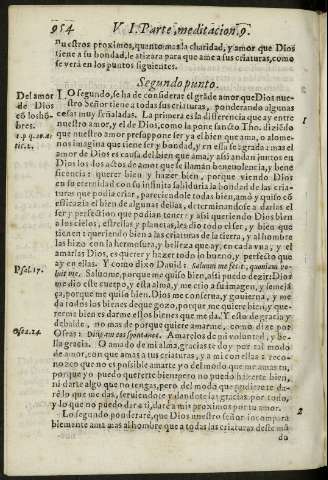 954 V I. Parte, meditacion. 9.
nuestros proximos, quanto mas la charidad, y amor que Dios
tiene a su bondad, le atizara para que ame a sus criaturas, como
se verà en los puntos siguientes.
Segundo punto.
Del amor de Dios cõ los hõbres.
LO segundo, se ha de considerar el grãde amor que Dios nue-
stro Señor tiene a todas sus criaturas, ponderando algunas
cosas muy señaladas. La primera es la diferencia que ay entre
1
nuestro amor, y el de Dios, como la pone sancto Tho. diziẽdo
que nuestro amor presuppone ser y el bien que ama, o alome-
nos imagina que tiene ser y bondad, y en ella se agrada: mas el
amor de Dios es causa del bien que ama; y assi andan juntos en
Dios los dos actos de amor que se llaman beneuolencia, y bene
ficencia: querer bien y hazer bien, porque viendo Dios
en su eternidad con su infinita sabiduria la bondad de las cria-
turas que podia criar, pareciendole todo bien, amò y quiso cõ
efficacia el bien de algunas dellas, determinandose a darles el
ser y perfection que podian tener: y assi queriendo Dios bien
a los cielos, estrellas y planetas, les diò todo el ser, y bien que
tienen: y queriendo bien a las criaturas de la tierra, y al hombre
las hizo con la hermosura, y belleza que ay en cada vna; y el
amarlas, es querer y hazer todo lo bueno, y perfecto que
ay en ellas. Y como dixo Dauid: Saluum me fecit, quoniam vo-
Psal. 17.
luit me. Saluome, porque me quiso bien, assi puedo dezir: Dios
me diò este cuerpo, y esta alma, y me criò a su imagen, y semejã
ça, porque me quiso bien. Dios me conserua, y gouierna, y me
da todos los bienes de que gozo, porque me quiere bien, y que-
rerme bien es darme essos bienes que me da. Y esto de gracia y
debalde, no mas de porque quiere amarme, como dize por
Osea. 14.
Oseas: Diligam eos spontaneè. Amarelos de mi voluntad, y de-
lla gracia. O amado de mi alma, gracias te doy por tal modo
de amor, con que amas a tus criaturas, y a mi con ellas: recono-
zco que no es possible amarte yo del modo que me amas tu,
porque yo puedo quererte bien: pero no puedo hazerte bien,
ni darte algo que no tengas, pero del modo que pudiere te da-
rè lo que me das, siruiendote y dandote las gracias por todo,
y lo que no puedo dar a ti, darè a mis proximos por tu amor.
Lo segundo ponderarè, que Dios nuestro Señor incompara
2
blemente ama mas al hombre que a todas las criaturas deste mũ
do